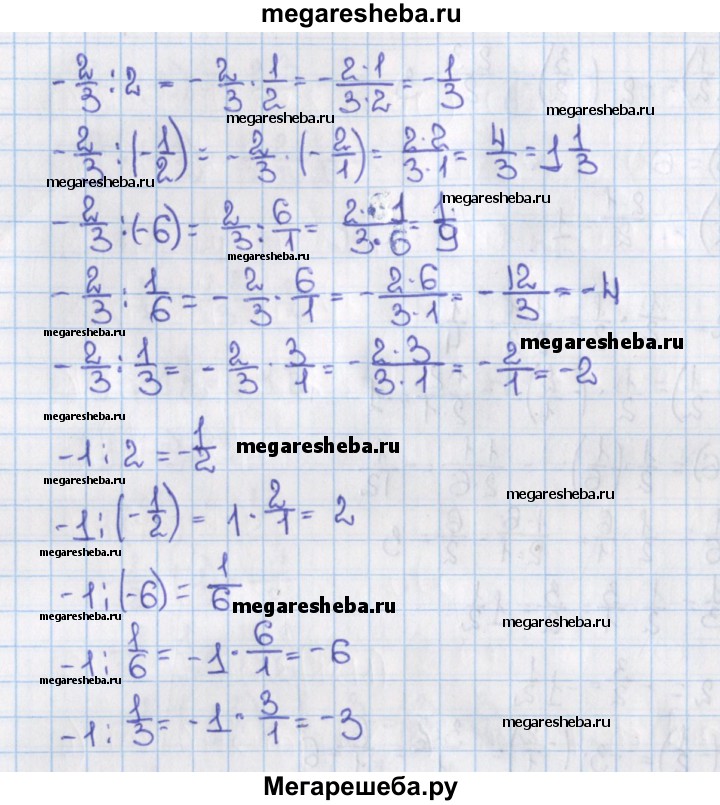 megaresheba.ru
-2/3 : 2 = -2/3 · 1/2 = -2·1/3·2 = -1/3
megaresheba.ru
megaresheba.ru
-2/3 : (-1/2) = -2/3 · (-2/1) = 2·2/3·1 = 4/3 = 1 1/3
megaresheba.ru
megaresheba.ru
-2/3 : (-6) = 2/3 : 6/1 = 2·1/3·6 = 1/9
megaresheba.ru
-2/3 : 1/6 = -2/3 · 6/1 = -2·6/3·1 = -12/3 = -4
megaresheba.ru
megaresheba.ru
-2/3 : 1/3 = -2/3 · 3/1 = -2·3/3·1 = -2/1 = -2
megaresheba.ru
-1 : 2 = -1/2
megaresheba.ru
megaresheba.ru
megaresheba.ru
-1 : (-1/2) = 1 · 2/1 = 2
megaresheba.ru
-1 : (-6) = 1/6
megaresheba.ru
megaresheba.ru
megaresheba.ru
-1 : 1/6 = -1 · 6/1 = -6
megaresheba.ru
-1 : 1/3 = -1 · 3/1 = -3
megaresheba.ru
Мегарешеба.ру